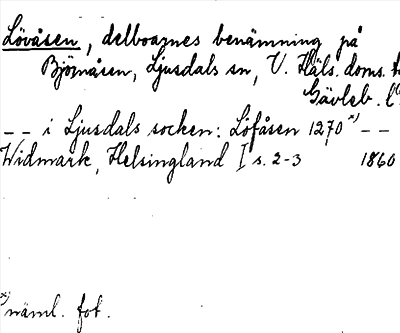 Lövåsen, delboarnes benämning på
Björnåsen, Ljusdals sn, V. Häls. doms.
Gävleb. l
-- i Ljusdals socken: Löfåsen 1270 x) --
Widmark, Helsingland I s. 2-3 1860
x) näml. fot.